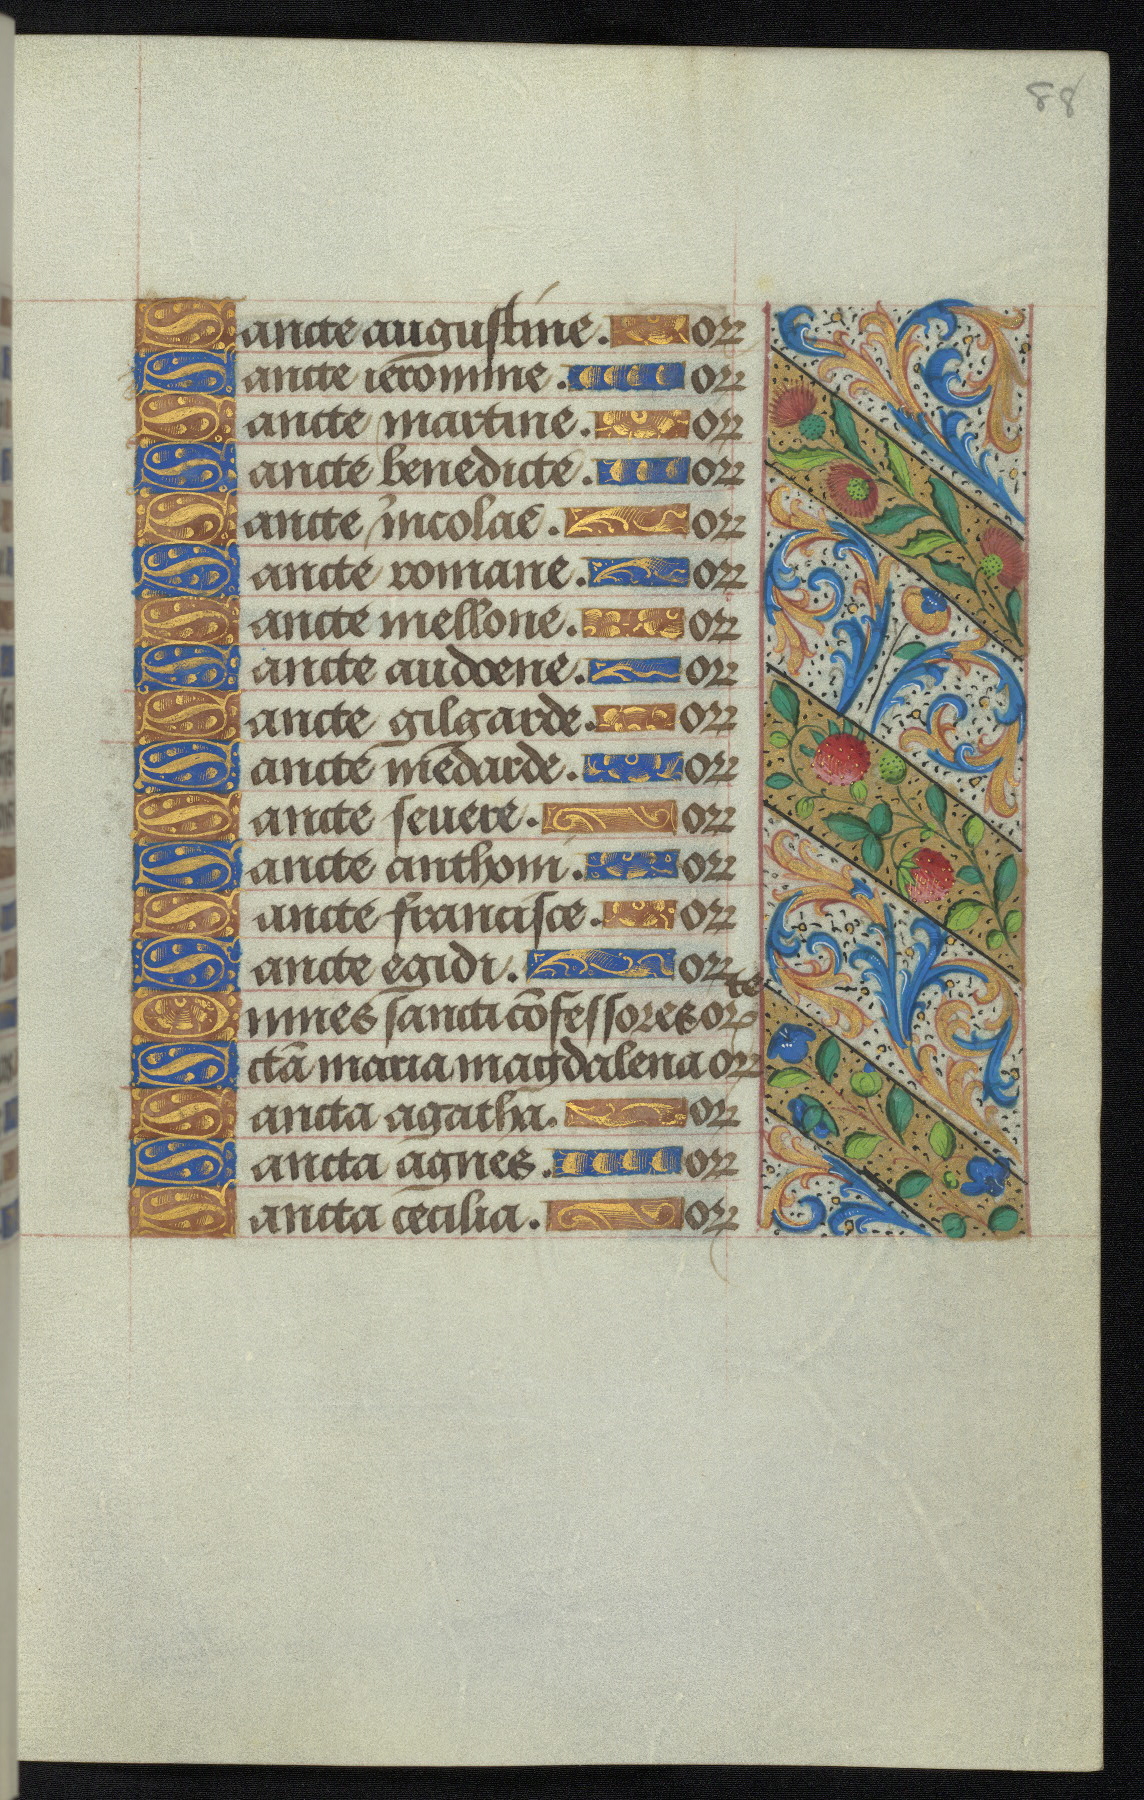 88
Sancte augustine. or
Sancte ieronime. or
Sancte martine. or
Sancte benedicte. or
Sancte nicolae. or
Sancte romane. or
Sancte mellone. or
Sancte audoene. or
Sancte gilgarde. or
Sancte medarde. or
Sancte seuere. or
Sancte anthoni. or
Sancte francisce. or
Sancte egidi. or
te
Omnes sancti cõfessores or
Sctã maria magdalena or
Sancta agatha. or
Sancta agnes. or
Sancta cecilia. or